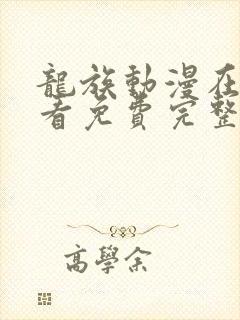 龍族動漫在
看免費完整
高學余